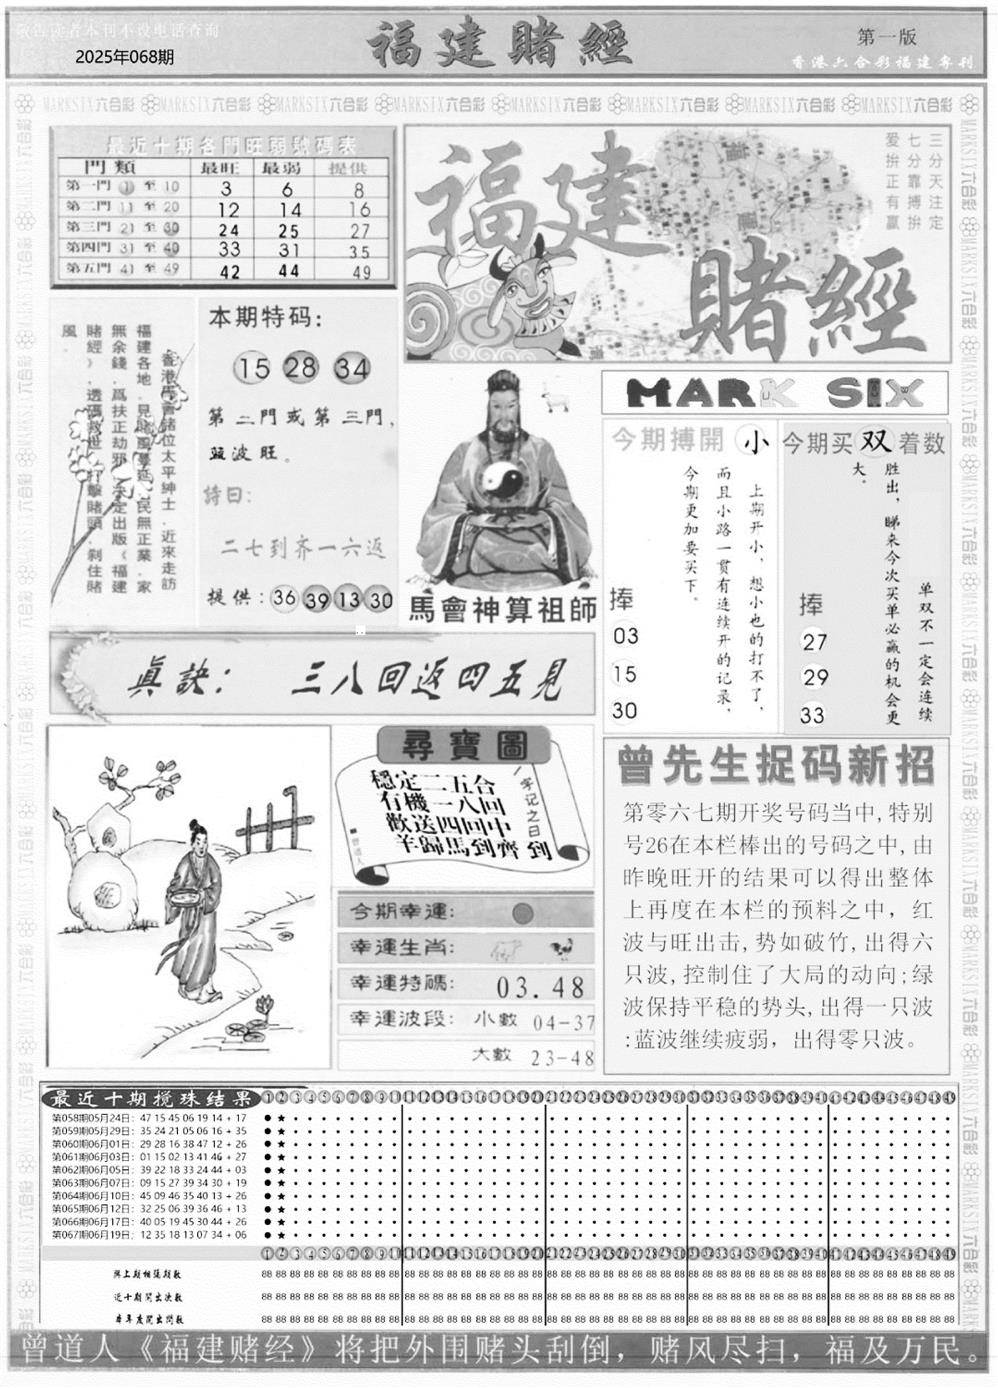 敬告读者本刊不设电话查询
2025年068期
福建赌經
第一版
香港六合彩福建專刊
MARKSIX六合彩 MARKSIX六合彩 MARKSIX六合彩 MARKSIX六合彩 MARKSIX六合彩 MARKSIX六合彩 MARKSIX六合彩 MARKSIX六合彩
最近十期各門旺弱號碼表
門類 最旺 最弱 提供
第一門 1 至 10 3 6 8
第二門 11 至 20 12 14 16
第三門 21 至 30 24 25 27
第四門 31 至 40 33 31 35
第五門 41 至 49 42 44 49
福建
賭經
三分天注定
七分靠搏拚
爱拚正有赢
香港馬會諸位太平紳士.近來走訪
福建各地.見賭風蔓延.民無正業.家
無余錢.爲扶正劫邪.决定出版《福建
賭經》.透碼救世.打擊賭頭.剎住賭
風.
本期特码：
15 28 34
第二門或第三門，
蓝波旺。
詩曰：
二七到齐一六返
提供：36 39 13 30
馬會神算祖師
MARK SIX
今期搏開 小
上期开小，想小也的打不了，
而且小路一贯有连续开的记录，
今期更加要买下。
捧
03
15
30
今期买 双 着数
单双不一定会连续
胜出，睇来今次买单必赢的机会更
大。
捧
27
29
33
眞訣： 三八回返四五見
尋寶圖
穩定二五合
有機一八回
歡送四回中
羊歸馬到齊
一字记之曰 到
■曾道人
今期幸運：
幸運生肖：
幸運特碼： 03.48
幸運波段： 小數 04-37
大數 23-48
曾先生捉码新招
第零六七期开奖号码当中,特别
号26在本栏棒出的号码之中,由
昨晚旺开的结果可以得出整体
上再度在本栏的预料之中，红
波与旺出击,势如破竹,出得六
只波,控制住了大局的动向;绿
波保持平稳的势头,出得一只波
:蓝波继续疲弱，出得零只波。
最近十期搅珠结果
1 2 3 4 5 6 7 8 9 10 11 12 13 14 15 16 17 18 19 20 21 22 23 24 25 26 27 28 29 30 31 32 33 34 35 36 37 38 39 40 41 42 43 44 45 46 47 48 49
第058期05月24日：47 15 45 06 19 14 + 17
第059期05月29日：35 24 21 05 06 16 + 35
第060期06月01日：29 28 16 38 47 12 + 26
第061期06月03日：01 15 02 13 41 46 + 27
第062期06月05日：39 22 18 33 24 44 + 03
第063期06月07日：09 15 27 39 34 30 + 19
第064期06月10日：45 09 46 35 40 13 + 26
第065期06月12日：32 25 06 39 36 46 + 13
第066期06月17日：40 05 19 45 30 44 + 26
第067期06月19日：12 35 18 13 07 34 + 06
1 2 3 4 5 6 7 8 9 10 11 12 13 14 15 16 17 18 19 20 21 22 23 24 25 26 27 28 29 30 31 32 33 34 35 36 37 38 39 40 41 42 43 44 45 46 47 48 49
與上期相隔期数
近十期開出次数
本年度開出期数
曾道人《福建赌经》将把外围赌头刮倒，赌风尽扫，福及万民。